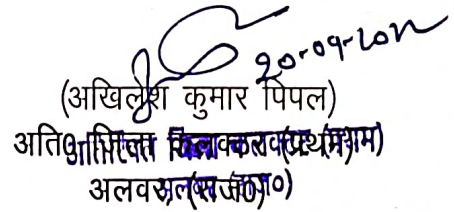 20-09-2022
(अखिलेश कुमार पिपल)
अति० जिला कलक्टर (प्रथम)
अलवर (राज०)